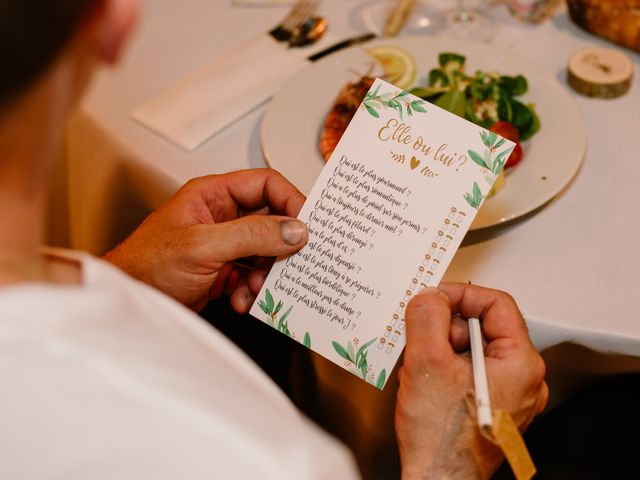 Elle ou lui ?
Qui est le plus gourmand ?
Qui est le plus romantique ?
Qui a le plus de point sur son permis ?
Qui a toujours le dernier mot ?
Qui est le plus fêtard ?
Qui est le plus déjanté ?
Qui a le plus d'or ?
Qui est le plus dépensié ?
Qui est le plus long a se préparer ?
Qui est le plus bordélique ?
Qui a le meilleur pas de danse ?
Qui est le plus stressé le jour J ?